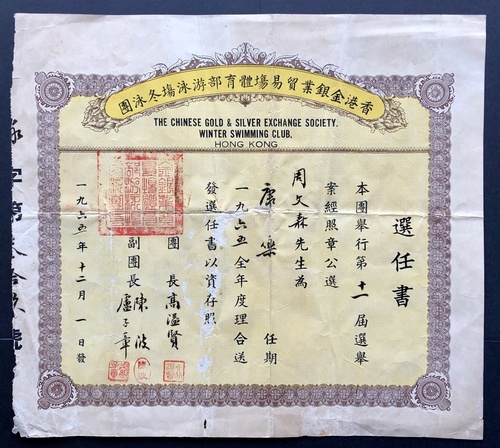 香港金銀業貿易塲體育部游泳塲冬泳團
THE CHINESE GOLD & SILVER EXCHANGE SOCIETY.
WINTER SWIMMING CLUB.
HONG KONG
選任書
本團舉行第十一屆選舉
案經照章公選
周文森先生為
康樂 任期
一九六五全年度理合送
發選任書以資存照
團長高溢賢
副團長陳波
盧子章
一九六五年十二月一日發
字第 號